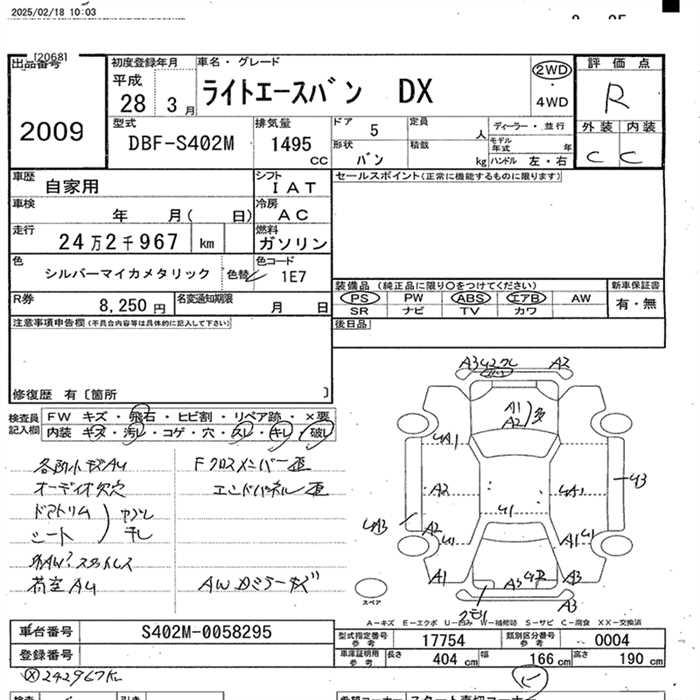 2025/02/18 10:03
[2068]
出品番号
2009
初度登録年月
平成
28年 3月
車名・グレード
ライトエースバン DX
2WD
・
4WD
評価点
R
外装 内装
C C
型式
DBF-S402M
排気量
1495
CC
ドア
5
定員
人
ディーラー・並行
モデル年式 年
形状
バン
積載
kg
ハンドル 左・右
車歴
自家用
シフト
IAT
セールスポイント(正常に機能するものに限ります)
車検
年 月( 日)
冷房
AC
走行
24万2千967 km
燃料
ガソリン
色
シルバーマイカメタリック
色替
色コード
1E7
装備品 (純正品に限り○をつけてください)
新車保証書
PS PW ABS エアB AW
有・無
SR ナビ TV カワ
R券
8,250円
名変通知期限
月 日
後日品
注意事項申告欄(不具合内容等は具体的に記入して下さい)
修復歴 有〔箇所 〕
検査員
記入欄
FW キズ・飛石・ヒビ割・リペア跡・×要
内装・キズ・汚レ・コゲ・穴・スレ・キレ・破レ
各所小キズAU
Fクロスメンバー歪
オーディオ欠穴
エンドパネル歪
ドアトリム
シート
ヤブレ
干レ
外AW?スタットレス
荷室AU
AWDミラーキズ
A3 U2
A2
A1
A2
多
UA1
A2
U1
UA1
U3
U3
A2
U1
A1
U1
A1
A3
A3
A3
クモリ
スペア
A-キズ E-エクボ U-凹み W-補修跡 S-サビ C-腐食 XX-交換済
車台番号
S402M-0058295
型式指定番号
参考
17754
類別区分番号
参考
0004
登録番号
車庫証明用
参考
長さ
404 cm
幅
166 cm
高さ
190 cm
242967K